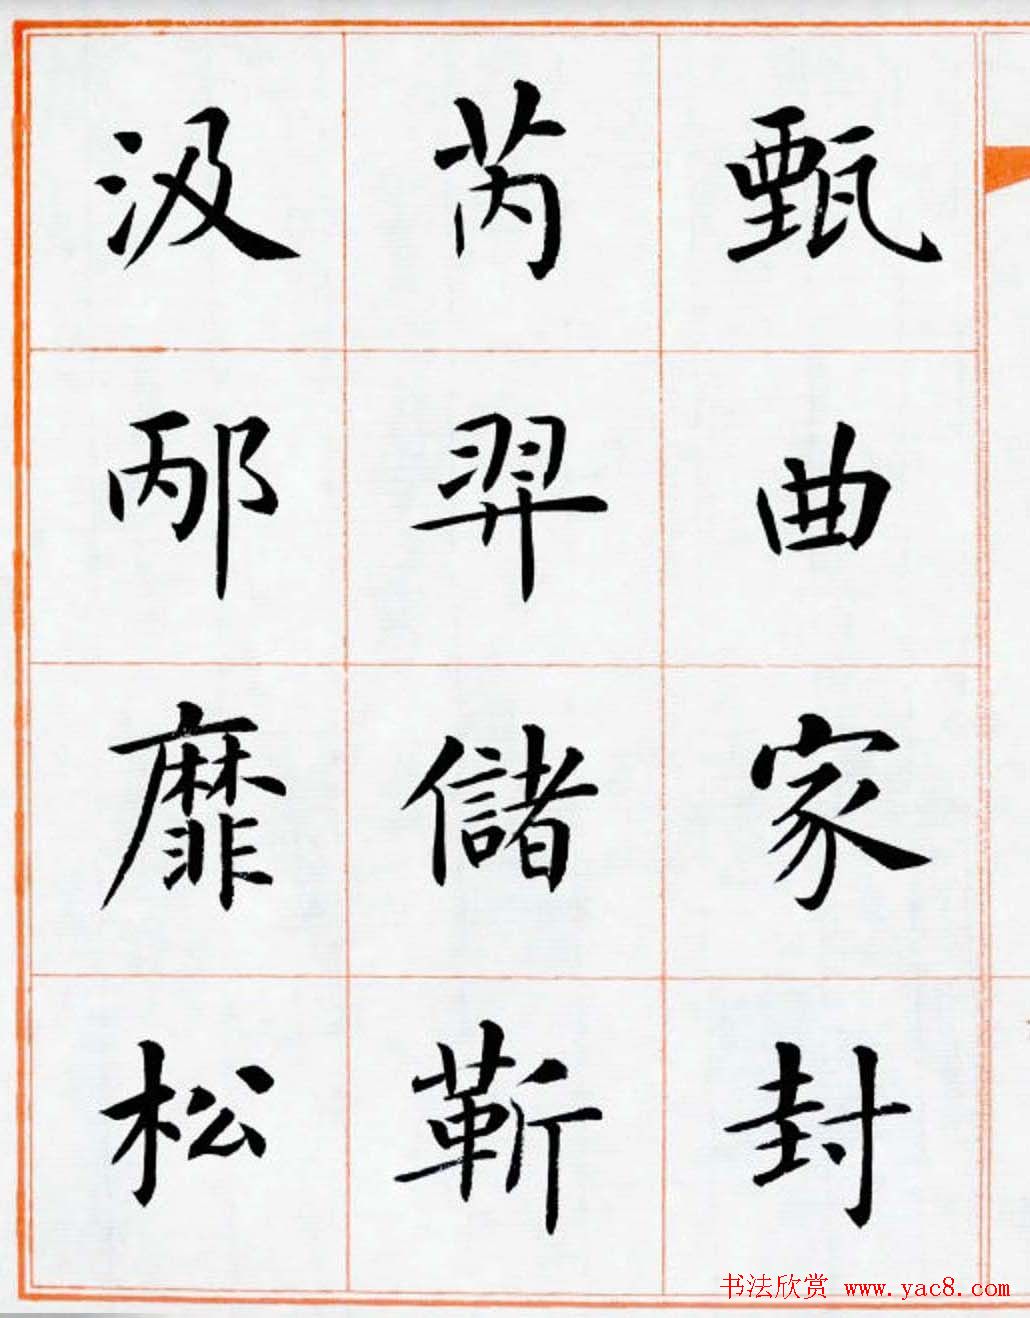 甄曲家封
芮羿儲靳
汲邴靡松
书法欣赏 www.yac8.com